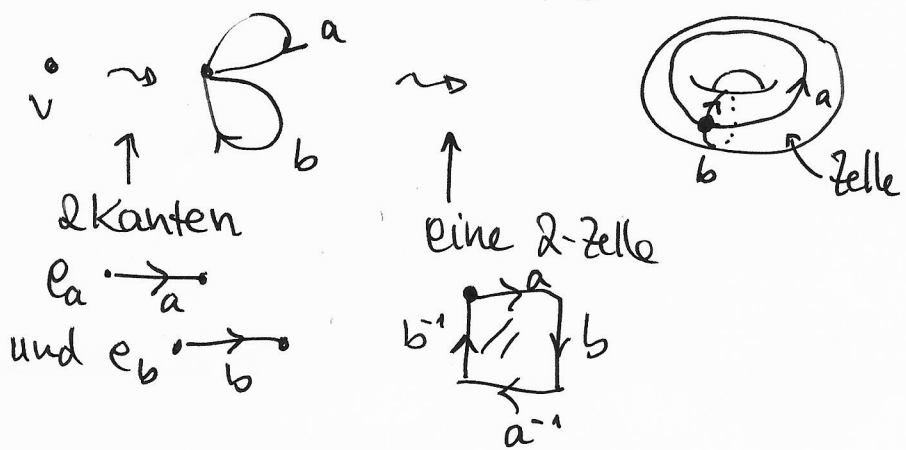 v
a
b
a
b
Zelle
2 Kanten
e_a
a
und e_b
b
eine 2-Zelle
a
b^{-1}
b
a^{-1}